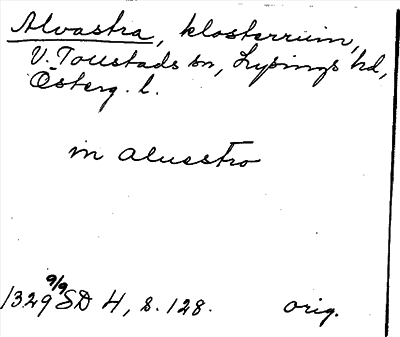 Alvastra, klosterruin,
V. Tollstads sn, Lysings hd,
Österg. l.
in aluestro
1329 9/9 SD 4, s. 128. orig.